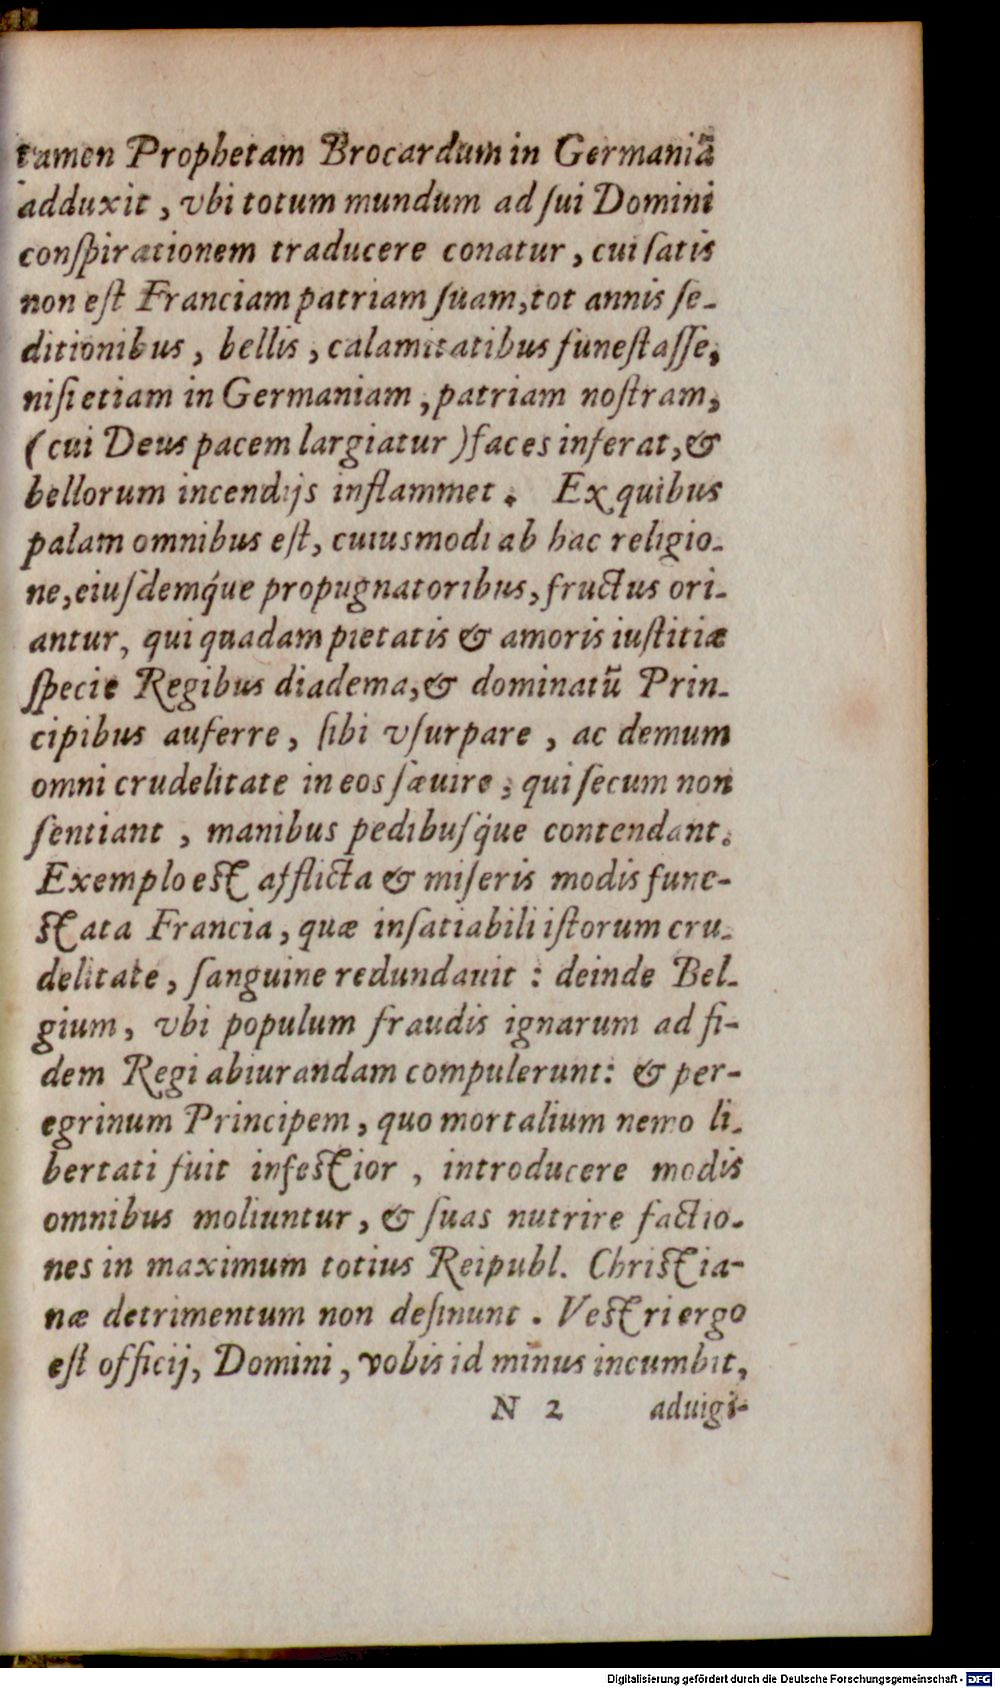 tamen Prophetam Brocardum in Germaniā
adduxit, vbi totum mundum ad ſui Domini
conſpirationem traducere conatur, cui ſatis
non eſt Franciam patriam ſuam, tot annis ſe-
ditionibus, bellis, calamitatibus funeſtaſſe,
niſi etiam in Germaniam, patriam noſtram,
(cui Deus pacem largiatur) faces inferat, &
bellorum incendijs inflammet. Ex quibus
palam omnibus eſt, cuiusmodi ab hac religio-
ne, eiuſdemq́ue propugnatoribus, fructus ori-
antur, qui quadam pietatis & amoris iuſtitiæ
ſpecie Regibus diadema, & dominatū Prin-
cipibus auferre, ſibi vſurpare, ac demum
omni crudelitate in eos ſæuire, qui ſecum non
ſentiant, manibus pedibuſq́ue contendant.
Exemplo eſt afflicta & miſeris modis fune-
ſtata Francia, quæ inſatiabili iſtorum cru-
delitate, ſanguine redundauit: deinde Bel-
gium, vbi populum fraudis ignarum ad fi-
dem Regi abiurandam compulerunt: & per-
egrinum Principem, quo mortalium nemo li-
bertati fuit infeſtior, introducere modis
omnibus moliuntur, & ſuas nutrire factio-
nes in maximum totius Reipubl. Chriſtia-
næ detrimentum non deſinunt. Veſtri ergo
eſt officij, Domini, vobis id minus incumbit,
N 2 aduigi-
Digitalisierung gefördert durch die Deutsche Forschungsgemeinschaft - DFG